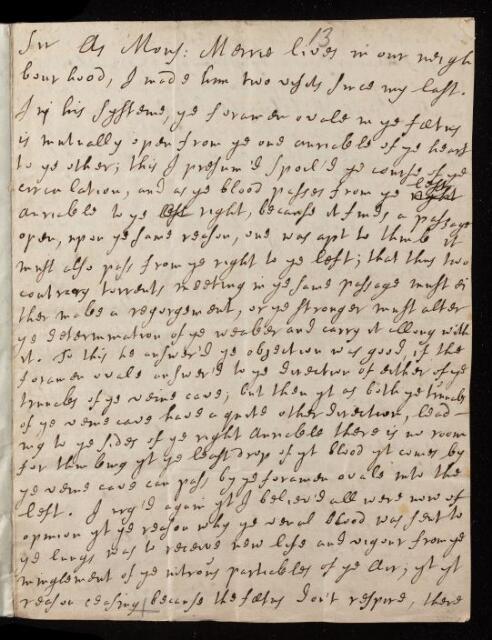 13
Sir As Mons: Merrie lives in our neigh
bour hood, I made him two visits since my last.
In his systeme, ye foramen ovale in ye fœtus
is mutually open from ye one auricule of ye heart
to ye other; this I presum'd spoil'd ye course of ye
circulation, and as ye blood passes from ye left
auricule to ye right, because it finds a passage
open, upon ye same reason, one was apt to think it
must also pass from ye right to ye left; that thus two
contrary torrents meeting in ye same passage must ei
ther make a regorgement, or ye stronger must alter
ye determination of ye weaker and carry it allong with
it. To this he answer'd ye objection was good, if the
foramen ovale answer'd to ye direction of either of ye
truncks of ye veine cave; but then yt as both ye truncks
of ye veine cave have a quite other direction, lead-
ing to ye sides of ye right auricule there is no room
for thinking yt ye least drop of yt blood yt comes by
ye veine cave can pass by ye foramen ovale into the
left. I urg'd again yt I believ'd all were now of
opinion yt ye reason why ye venal blood was sent to
ye lungs was to receive new life and vigour from ye
minglement of ye nitrous particles of ye Air; yt yt
reason ceasing because the fœtus don't respire, there